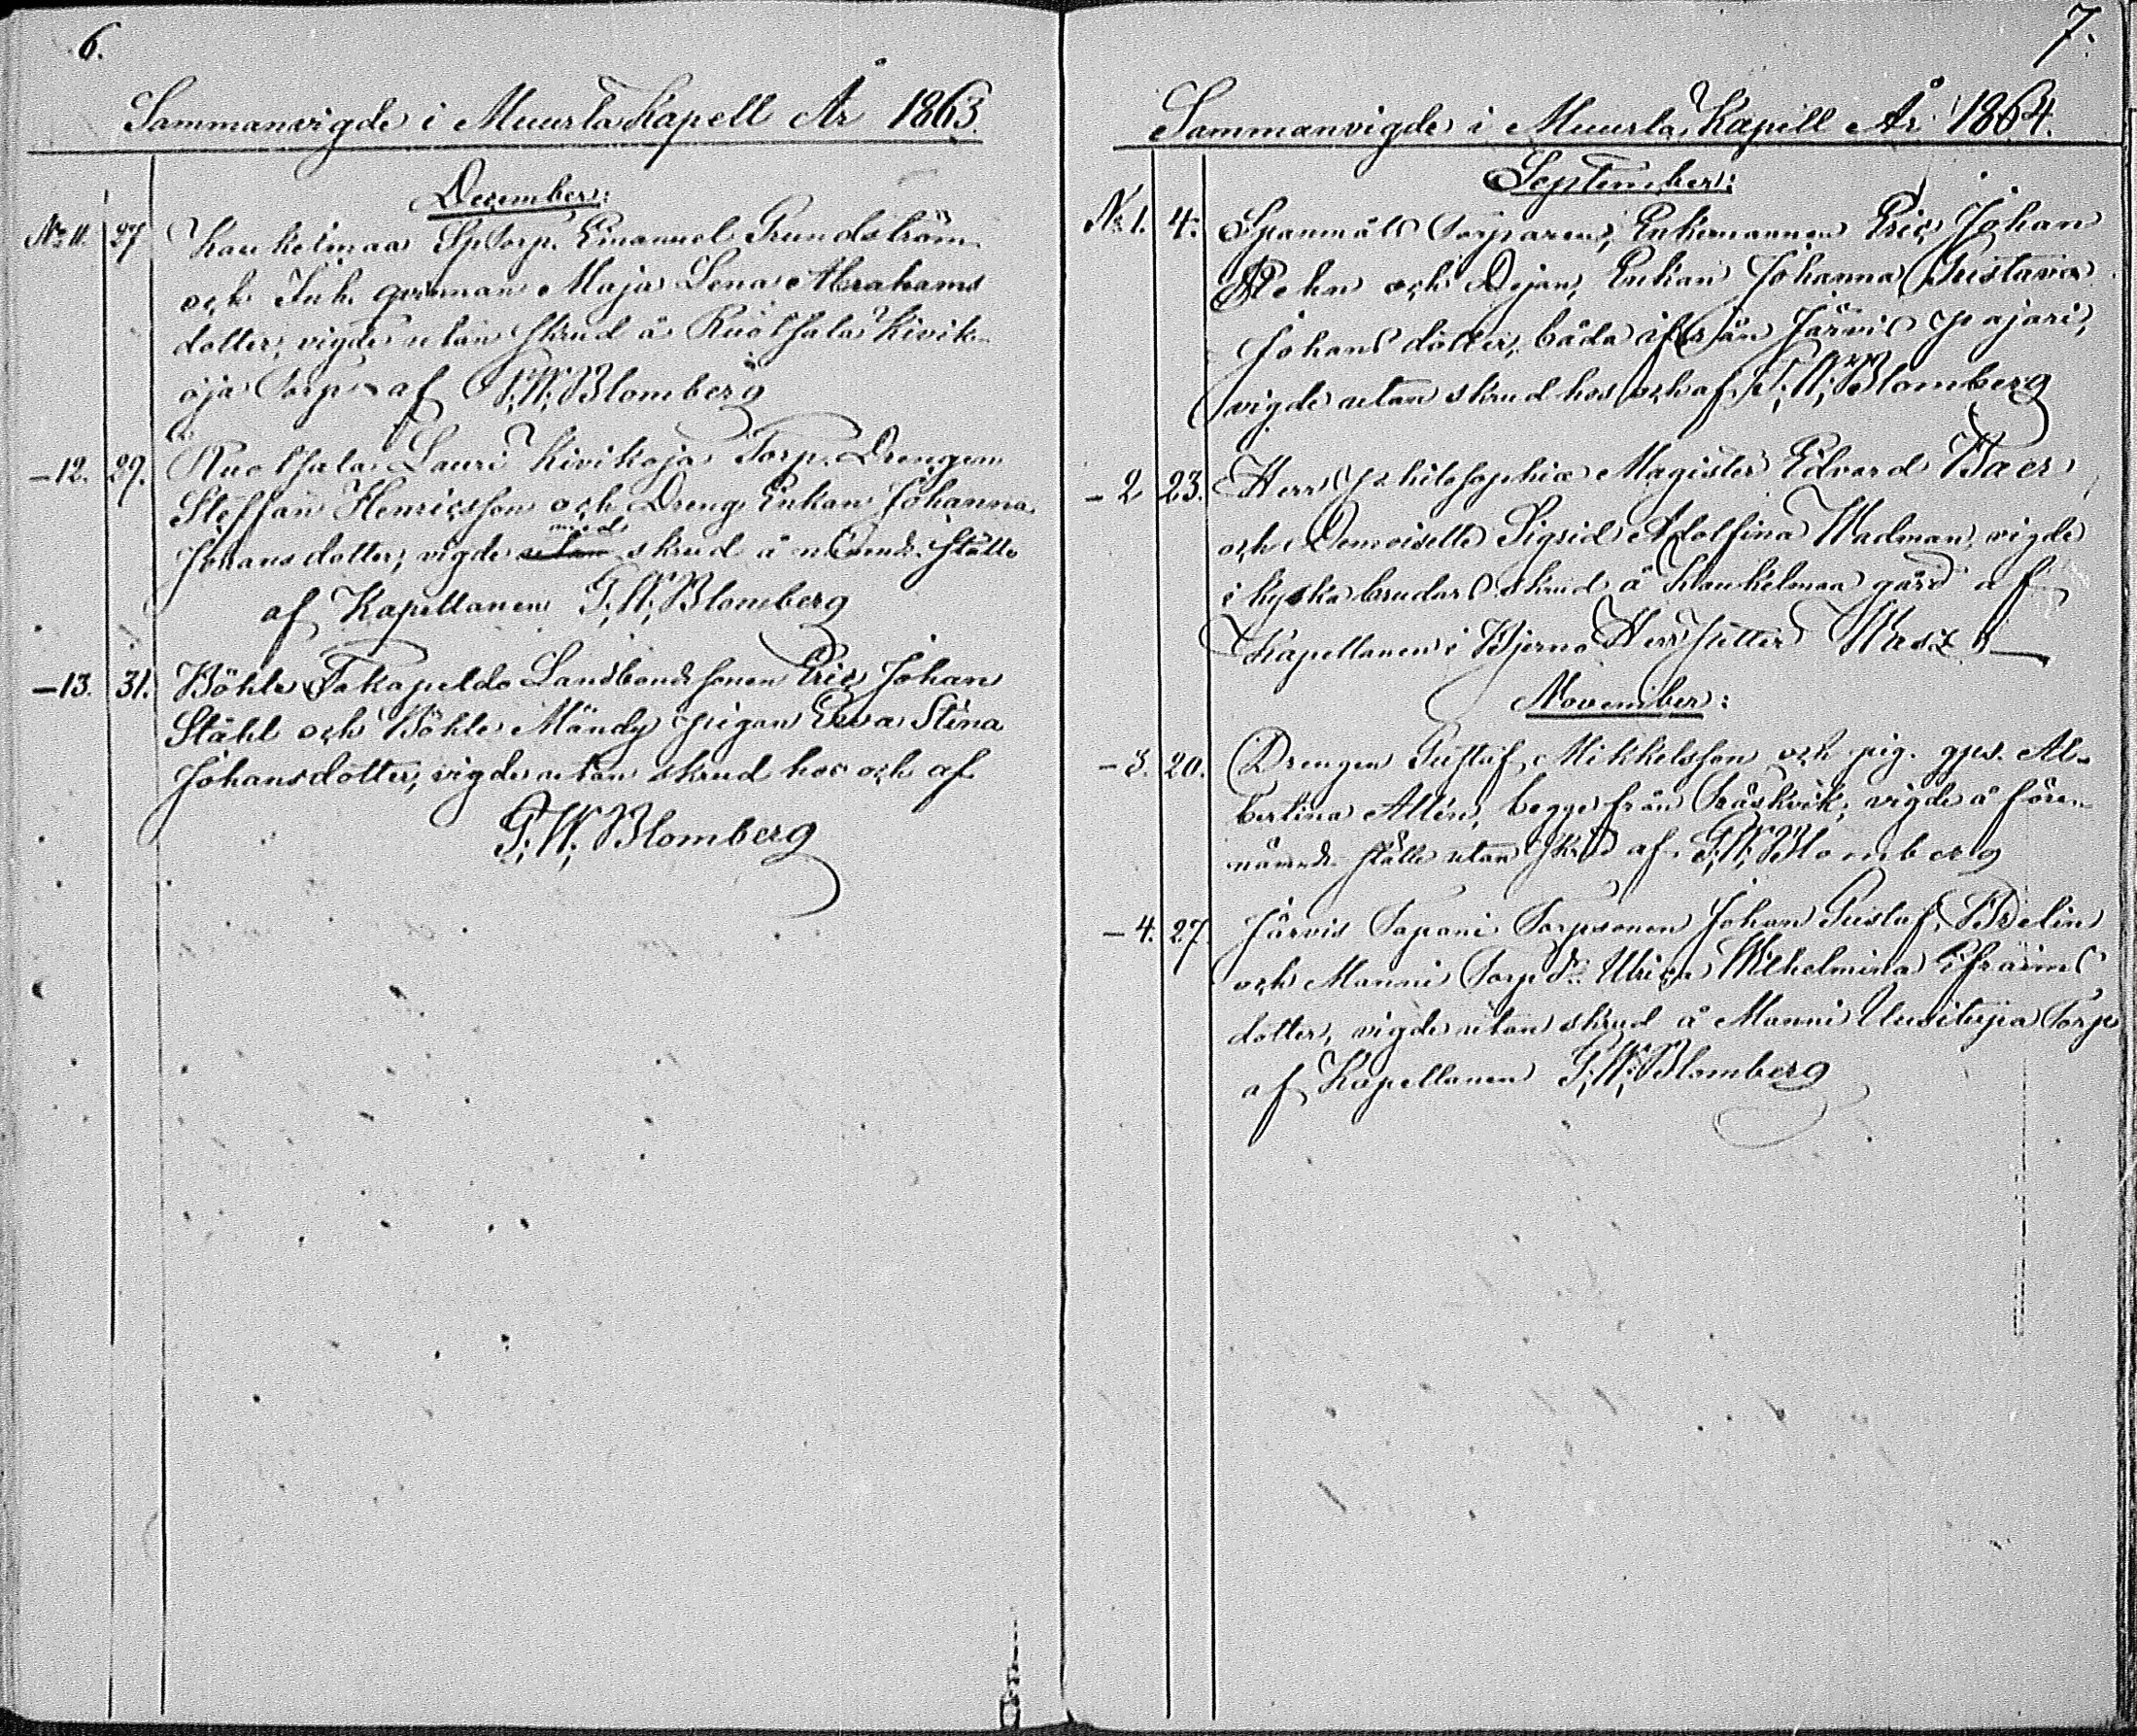 6.
Sammanvigde i Muurla Kapell År 1863.
December:
No 11. 27 Kaukelmaa SpTorp. Emanuel Grundström
och Inh. qvinnan Maja Lena Abrahams
dotter, vigde utan skrud å Ruotsala Kivik-
oja Torp af G. W. Blomberg
-12. 29. Ruotsala Lauri Kivikoja Torp. Drengen
Steffan Henricsson och Dreng Enkan Johanna
med
Johansdotter, vigde utan skrud å nämnde ställe
af Kapellanen G. W. Blomberg
-13. 31. Böhle Takapeldo Landbondsonen Eric Johan
Ståhl och Böhle Mändy pigan Eva Stina
Johansdotter, vigde utan skrud hos och af
G. W. Blomberg
7.
Sammanvigde i Muurla Kapell År 1864.
September:
No 1. 4. Torparen, Enkemannen Eric Johan
och Dejan, Enkan Johanna Gustava
Johansdotter, båda ifrån Järvis Pajari,
vigde utan skrud hos och af G. W. Blomberg
-2 23. Herr Philosophiæ Magister Edvard Baer
och Demoiselle Sigrid Adolfina Wadman, vigde
i kyska brudars skrud å Kaukelmaa gård af
Kapellanen i Bjerno Herr Petter
November:
-3. 20. Drengen Gustaf Mikkelsson och pig. gps. Al-
bertina Allén, begge från Träskvik, vigde å före-
nämnde ställe utan skrud af G. W. Blomberg
-4. 27. Järvis Tapani Torpsonen Johan Gustaf
och Manni Torp dr. Ulrica Wilhelmina Efraims
dotter, vigde utan skrud å Manni Uusitupa Torp
af Kapellanen G. W. Blomberg